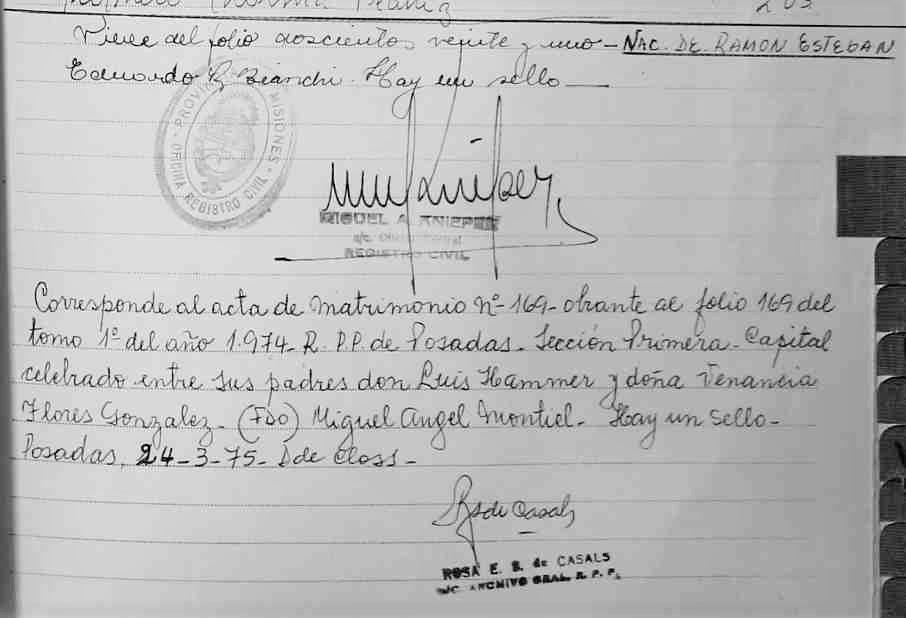 Viene del folio doscientos veinte y uno - NAC. DE. RAMON ESTEBAN
Eduardo Bianchi. Hay un sello
PROVINCIA MISIONES
OFICINA REGISTRO CIVIL
MIGUEL A.
REGISTRO CIVIL
Corresponde al acta de matrimonio nº 169 - obrante al folio 169 del
tomo 1º del año 1.974 - R. P.P. de Posadas - Sección Primera - Capital
celebrado entre sus padres don Luis Hammer y doña Venancia
Flores Gonzalez - (FDO) Miguel Angel Montiel - Hay un sello -
Posadas, 24 - 3 - 75 -
de Casals
ROSA E. S. de CASALS
A/C. ARCHIVO GRAL. R. P. P.